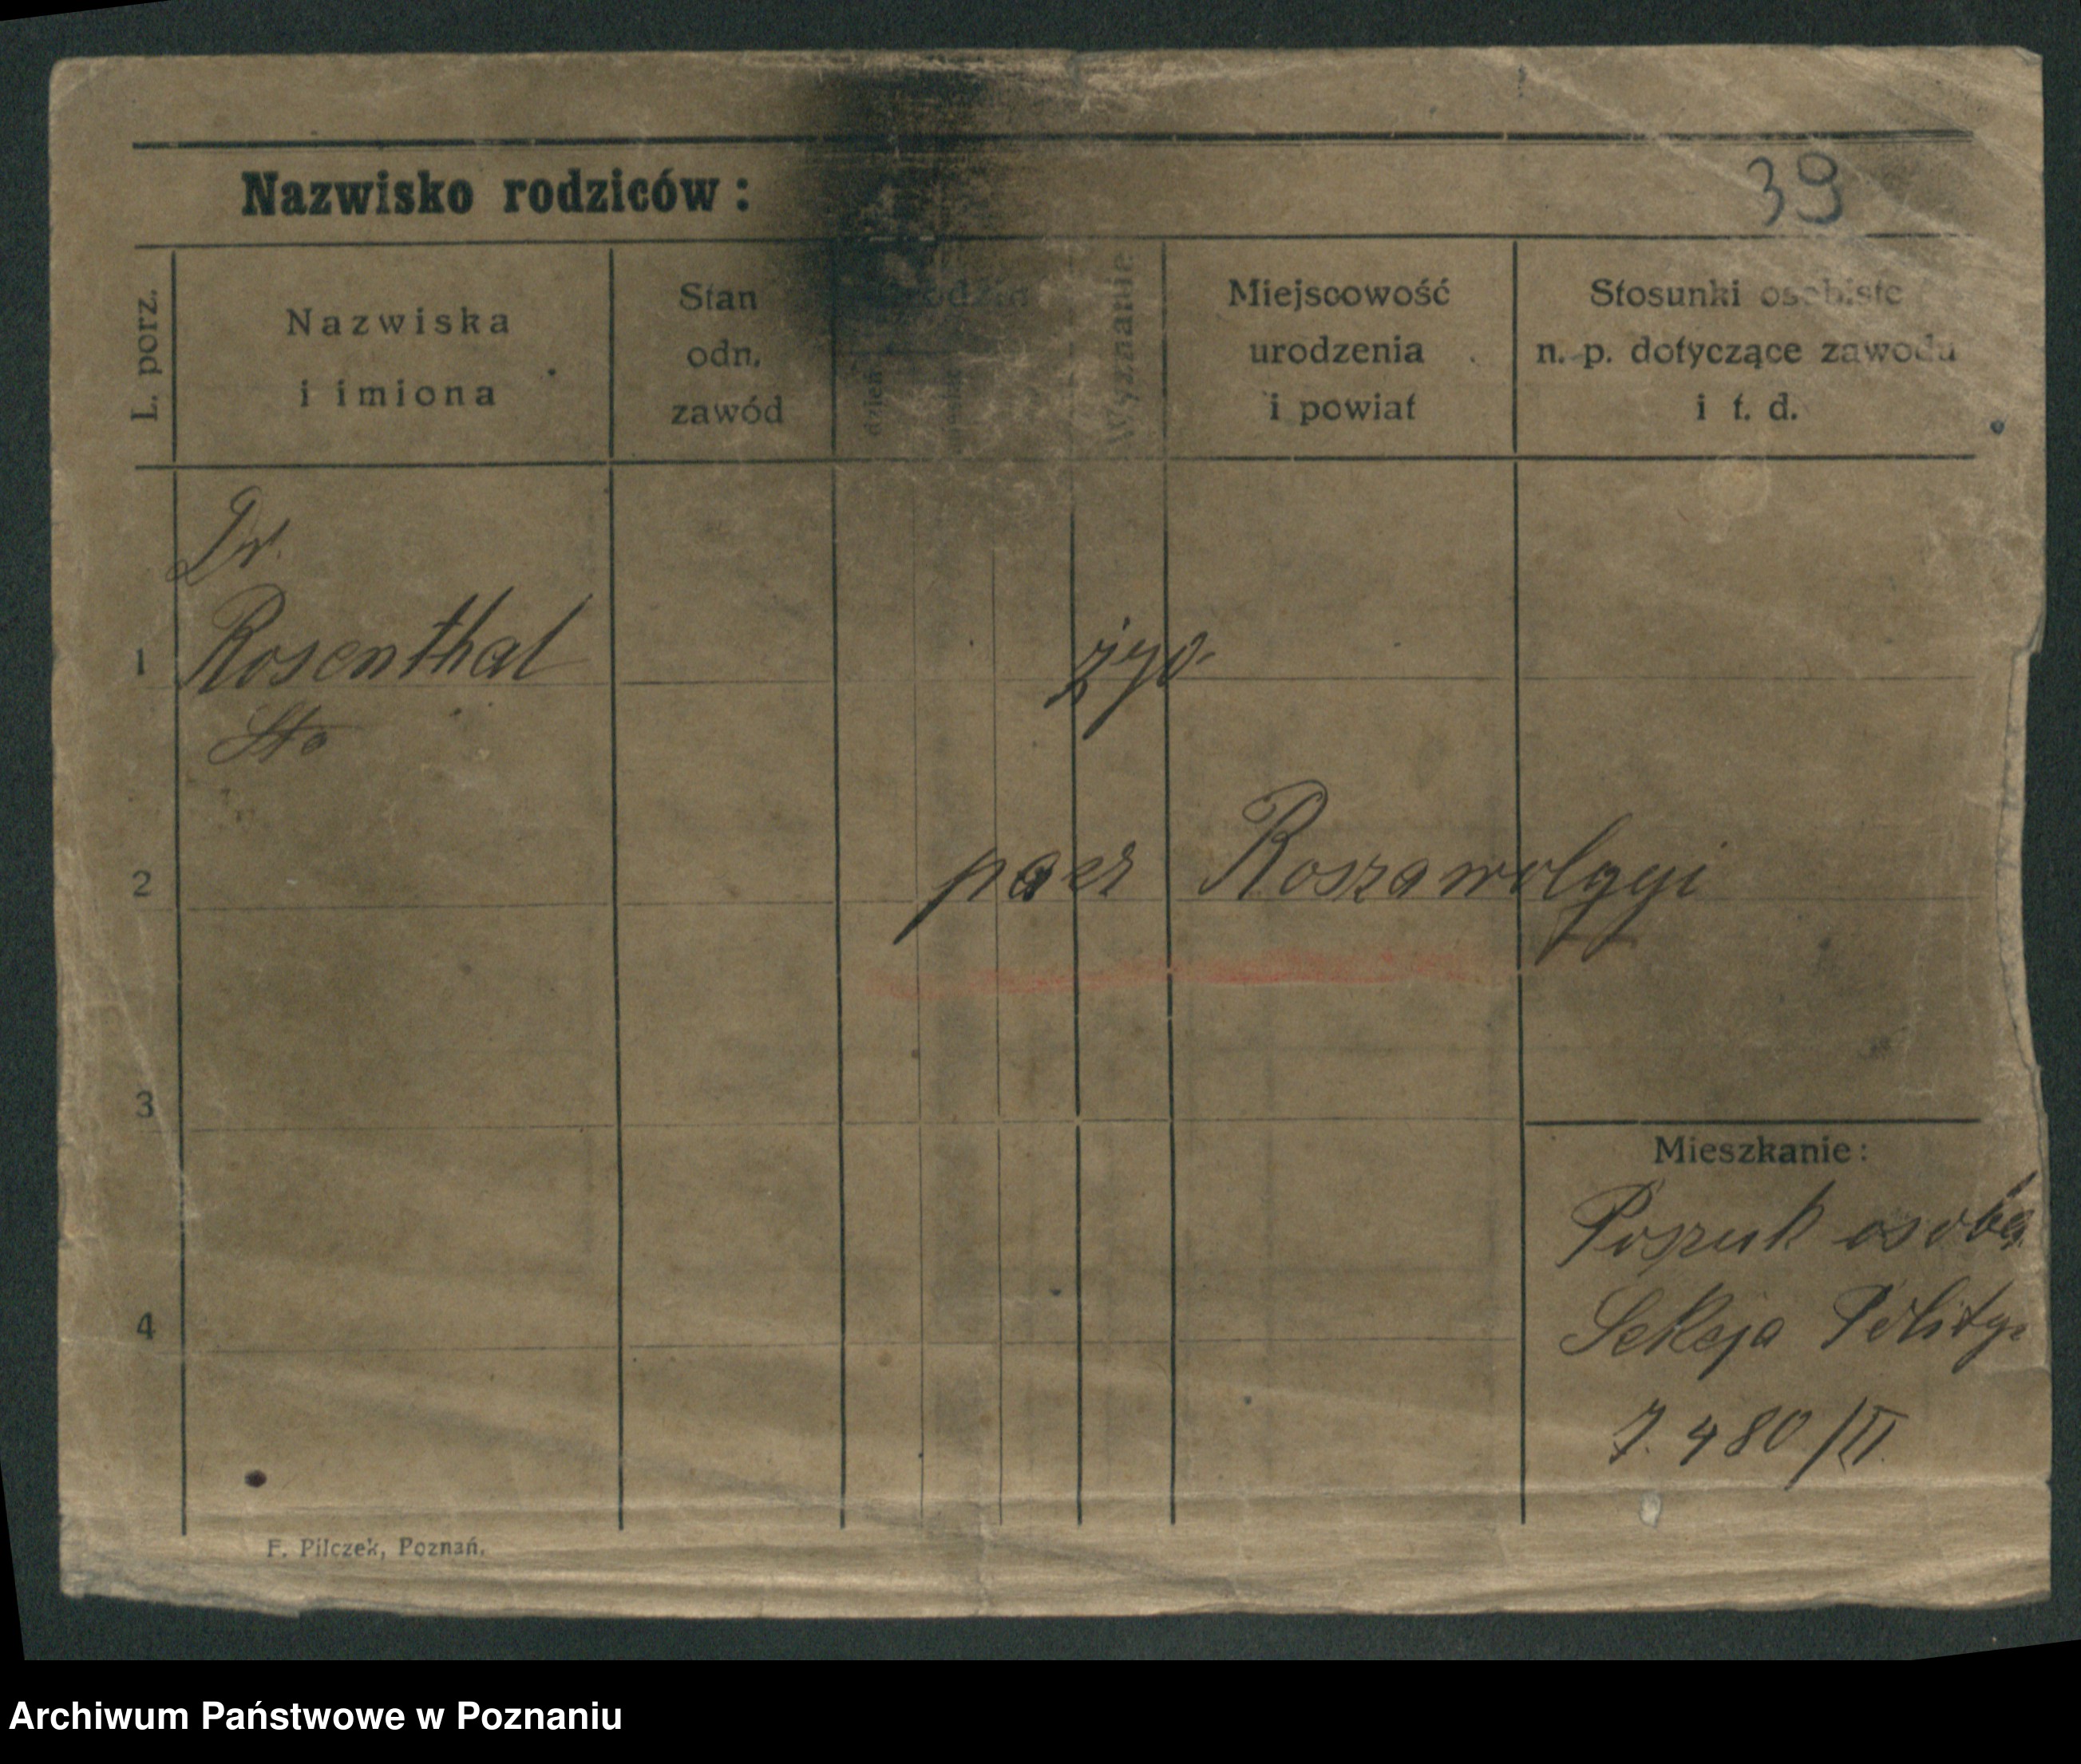 Nazwisko rodziców:
39
L. porz.
Nazwiska
i imiona
Stan
odn.
zawód
dzień
Wyznanie
Miejscowość
urodzenia
i powiat
Stosunki osobiste
n. p. dotyczące zawodu
i t. d.
Dr.
1 Rosenthal
żyd.
2
Roszawolgyi
3
Mieszkanie:
Poszuk osoba
4
Sekcja Polity.
7.480/II.
F. Pilczek, Poznań.
Archiwum Państwowe w Poznaniu